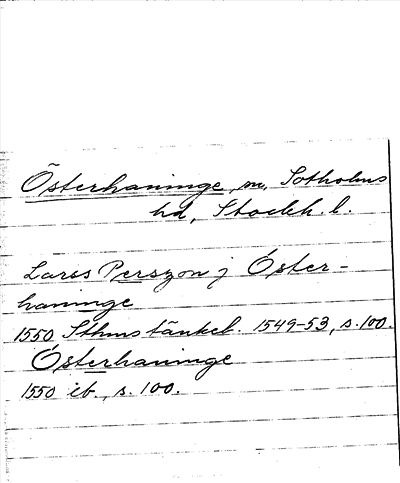 Österhaninge, sn, Sotholms
hd, Stockh. l.
Larss Perszon j Öster-
haninge
1550 Sthms tänkeb. 1549-53, s. 100.
Österhaninge
1550 ib., s. 100.